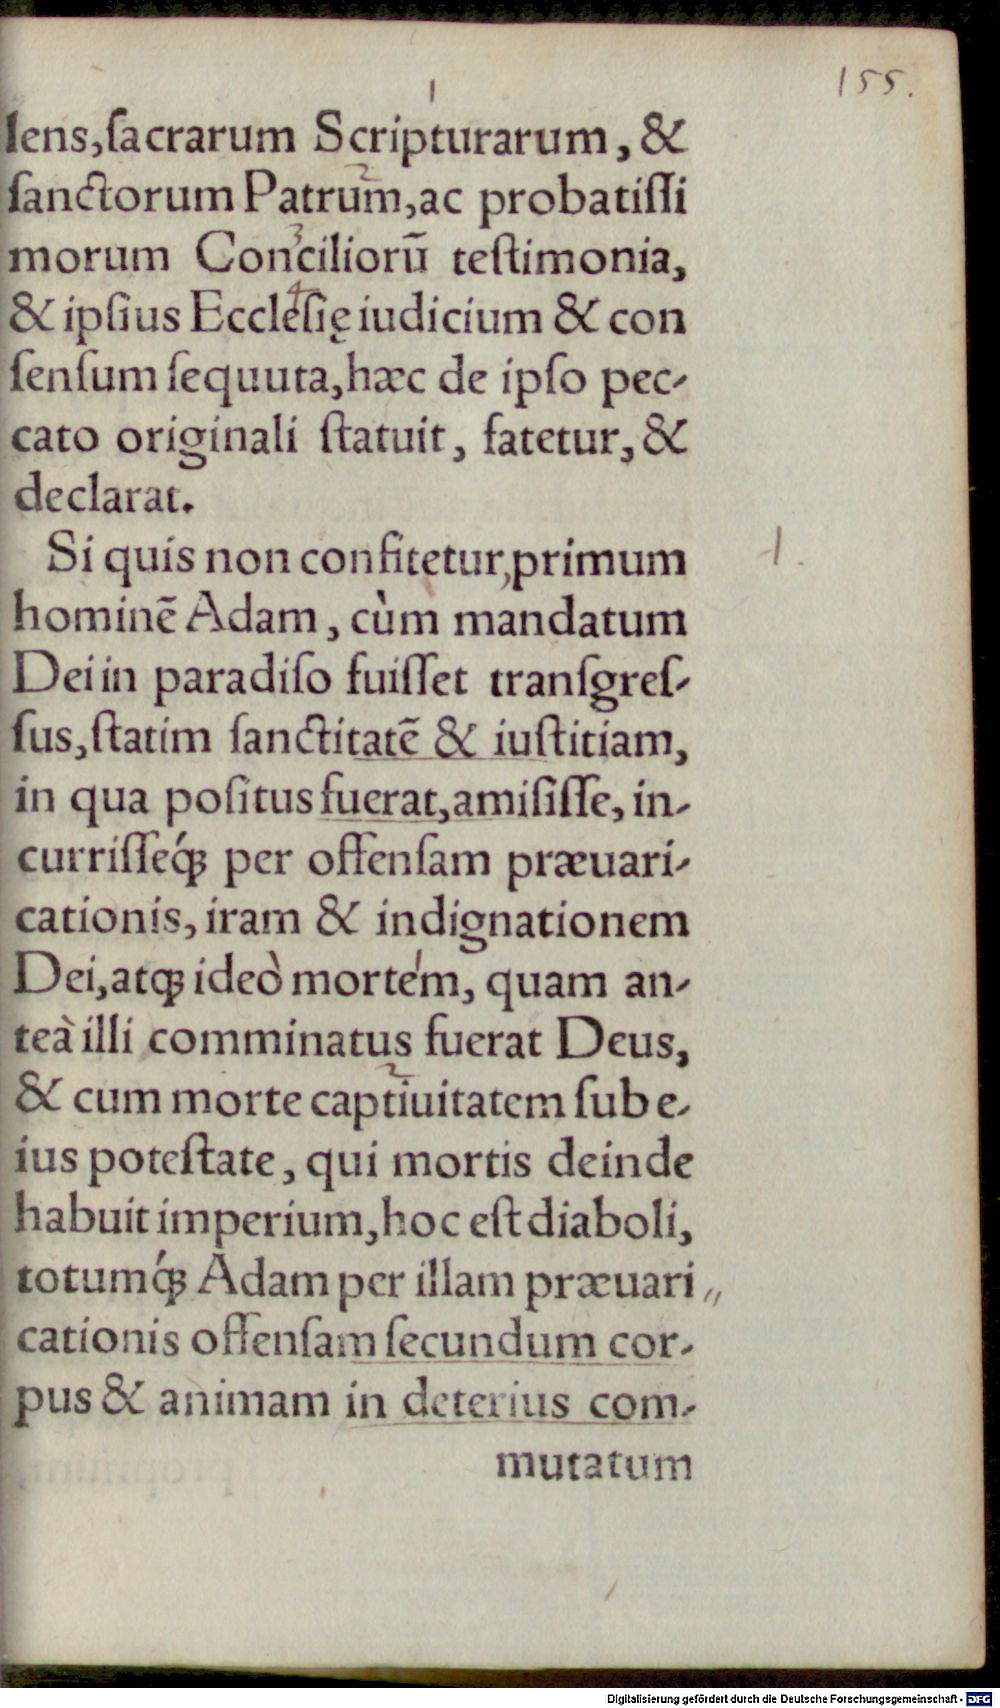 155.
1
lens, ſacrarum Scripturarum, &
2
ſanctorum Patrum, ac probatiſſi
3
morum Conciliorū teſtimonia,
4
& ipſius Eccleſię iudicium & con
ſenſum ſequuta, hæc de ipſo pec-
cato originali ſtatuit, fatetur, &
declarat.
Si quis non confitetur, primum 1.
hominē Adam, cùm mandatum
Dei in paradiſo fuiſſet tranſgreſ-
ſus, ſtatim ſanctitatē & iuſtitiam,
in qua poſitus fuerat, amiſiſſe, in-
curriſſeq́; per offenſam præuari-
cationis, iram & indignationem
Dei, atq; ideò mortem, quam an-
teà illi comminatus fuerat Deus,
2
& cum morte captiuitatem ſub e-
ius poteſtate, qui mortis deinde
habuit imperium, hoc eſt diaboli,
totumq́; Adam per illam præuari〃
cationis offenſam ſecundum cor-
pus & animam in deterius com-
mutatum
Digitalisierung gefördert durch die Deutsche Forschungsgemeinschaft - DFG